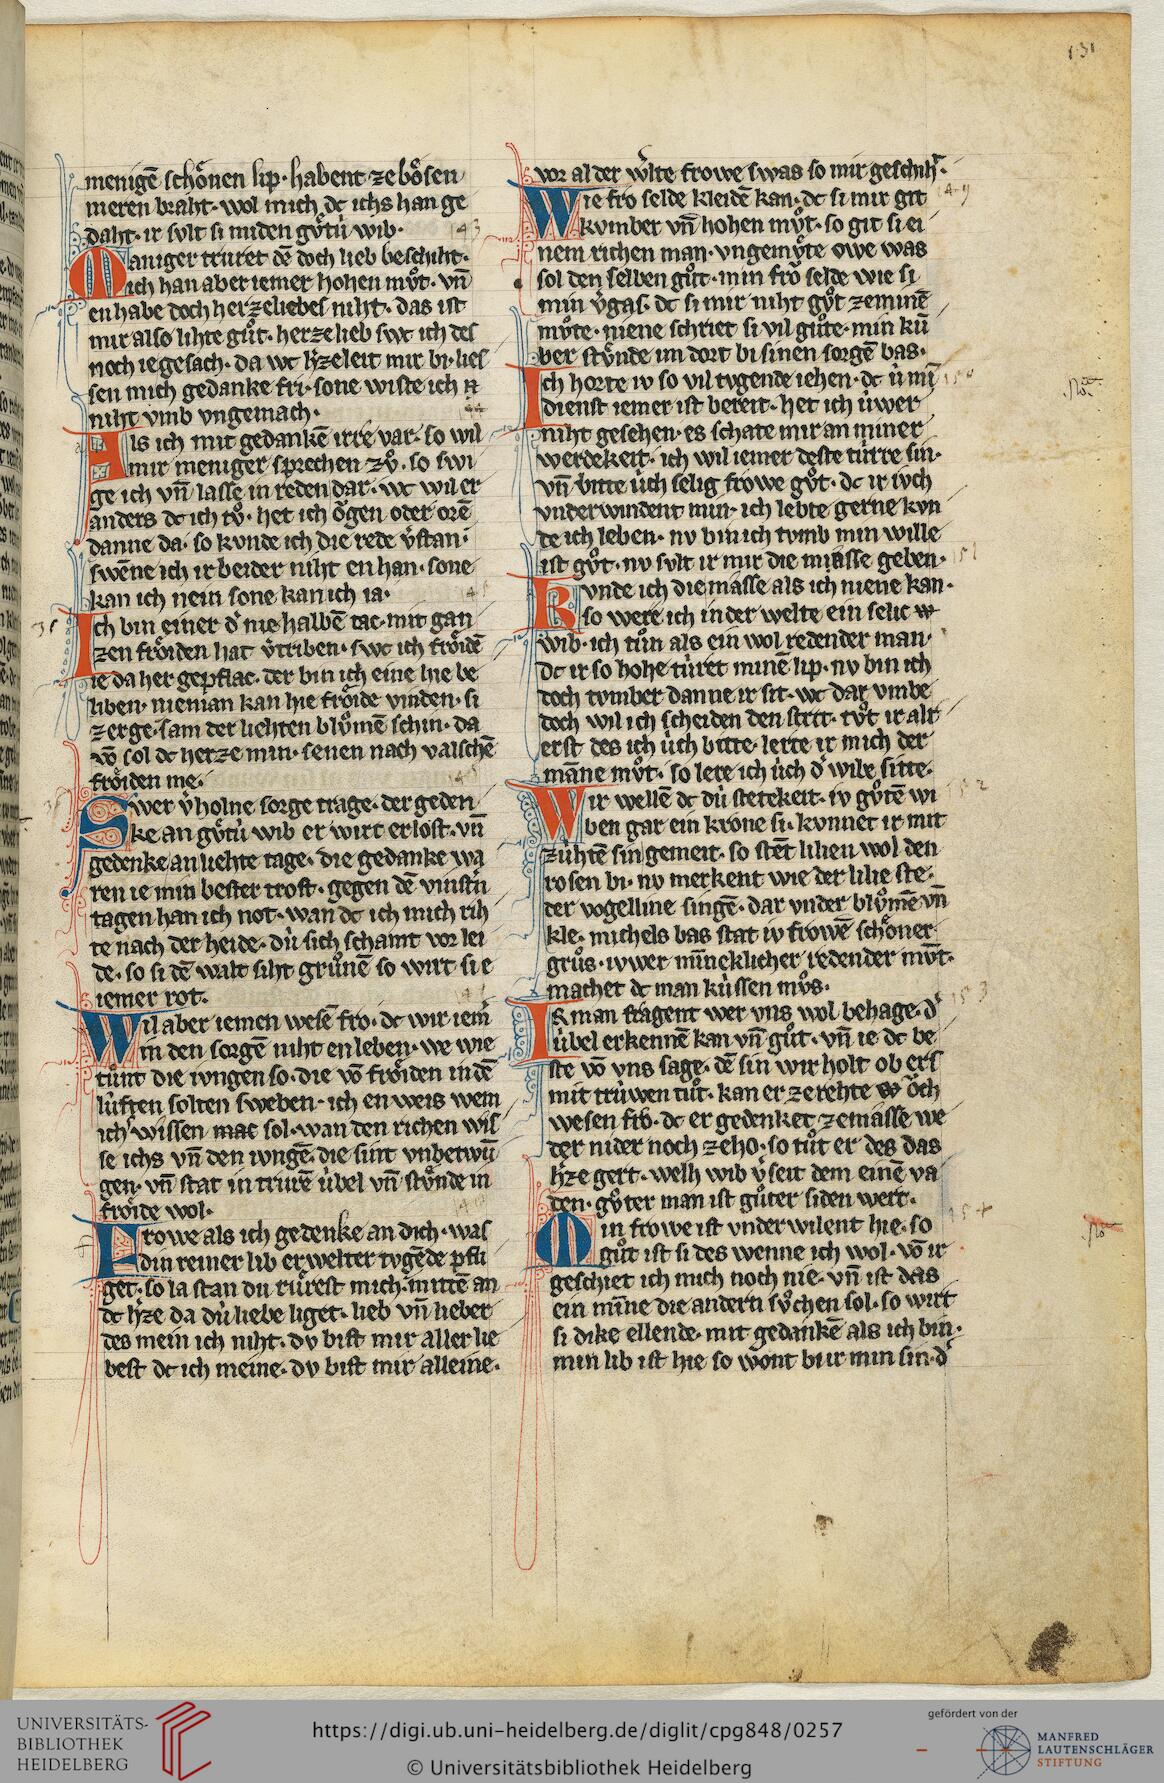 131
menigē schoͤnen lip · habent ze boͤsen
meren braht · wol mich dc ichs han ge
daht · ir svlt si miden guͤtú wib ·
Maniger truret dē doch lieb beschiht ·
ich han aber iemer hohen muͦt · vn̄
enhabe doch herzeliebes niht · das ist
mir also lihte guͦt · herzelieb swc ich des
noch ie gesach · da wc h̓zeleit mir bi · lies
sen mich gedanke fri · sone wiste ich
niht vmb vngemach ·
Als ich mit gedankē irre var · so wil
mir meniger sprechen zvͦ · so swi
ge ich vn̄ lasse in reden dar · wc wil er
anders dc ich tuͦ · het ich oͮgen oder orē
danne da · so kvnde ich die rede v̓stan ·
swēne ich ir beider niht en han · sone
kan ich nein sone kan ich ia ·
Ich bin einer d̓ nie halbē tac · mit gan
zen froͤiden hat v̓triben · swc ich froͤidē
ie da her gepflac · der bin ich eine hie be
liben · nieman kan hie froͤide vinden · si
zerge · sam der liehten bluͦmē schin · da
vō sol dc herze min · senen nach valschē
froͤiden me ·
Swer v̓holne sorge trage · der geden
ke an guͤtú wib er wirt erlost · vn̄
gedenke an liehte tage · die gedanke wa
ren ie min bester trost · gegen dē vinst̓n
tagen han ich not · wan dc ich mich rih
te nach der heide · dú sich schamt vor lei
de · so si dē walt siht gruͦnē so wirt si e
iemer rot ·
Wil aber iemen wesē fro · dc wir iem̓
in den sorgē niht en leben · we wie
tuͦnt die ivngen so · die vō froͤiden in dē
lúften solten sweben · ich en weis wem
ichs wissen mac sol · wan den richen wis
se ichs vn̄ den ivngē · die sint vnbetwū
gen · vn̄ stat in trurē úbel vn̄ stuͤnde in
froͤide wol ·
Frowe als ich gedenke an dich · was
din reiner lib erwelter tvgēde pfli
get · so la stan du ruͤrest mich · mittē an
dc h̓ze da dú liebe liget · lieb vn̄ lieber
des mein ich niht · dv bist mir aller lie
best dc ich meine · dv bist mir alleine ·
vor al der w̓lte frowe swas so mir geschiht ·
149
Wie fro selde kleidē kan · dc si mir git
kvmber vn̄ hohen muͦt · so git si ei
nem richen man · vngemuͤte owe was
sol den selben guͦt · min fro selde wie si
min v̓gas · dc si mir niht guͦt ze minē
muͦte · niene schriet si vil guͦte · min kū
ber stuͤnde im dort bi sinen sorgē bas ·
Ich horte iv so vil tvgende iehen · dc ú mī
dienst iemer ist bereit · het ich úwer
niht gesehen · es schate mir an miner
werdekeit · ich wil iemer deste túrre sin ·
vn̄ bitte úch selig frowe guͦt · dc ir ivch
vnderwindent min · ich lebte gerne kvn
te ich leben · nv bin ich tvmb min wille
ist guͦt · nv svlt ir mir die masse geben ·
151
Kvnde ich die masse als ich niene kan ·
so were ich in der welte ein selic
wib · ich tuͦn als ein wol redender man ·
dc ir so hohe túret minē lip · nv bin ich
doch tvmber danne ir sit · wc dar vmbe
doch wil ich scheiden den strit · tuͦt ir alr
erst des ich úch bitte · lerte ir mich der
manne muͦt · so lere ich úch d̓ wibe sitte ·
152
Wir wellē dc dú stetekeit · iv guͦtē wi
ben gar ein krone si · kvnnet ir mit
zúhtē sin gemeit · so stēt lilien wol den
rosen bi · nv merkent wie der lilie ste ·
der vogelline singē · dar vnder bluͦmē vn̄
kle · michels bas stat iv frowē schoͤner
gruͦs · ivwer mīneklicher redender mvnt ·
machet dc man kússen muͦs ·
153
Ir man fragent wer vns wol behage · d̓
úbel erkennē kan vn̄ guͦt · vn̄ ie dc be
ste vō vns sage · dē sin wir holt ob ers
mit trúwen tuͦt · kan er ze rehte oͮch
wesen fro · dc er gedenket ze masse we
der nider noch ze ho · so tuͦt er des das
h̓ze gert · welh wib v̓seit dem einē va
den · guͦter man ist guͦter siden wert ·
154
Min frowe ist vnder wilent hie · so
guͦt ist si des wenne ich wol · vō ir
geschiet ich mich noch nie · vn̄ ist das
ein mīne die andern suͦchen sol · so wirt
si dike ellende · mit gedankē als ich bin ·
min lib ist hie so wont bi ir min sin · d̓
UNIVERSITÄTS-
BIBLIOTHEK
HEIDELBERG
https://digi.ub.uni-heidelberg.de/diglit/cpg848/0257
© Universitätsbibliothek Heidelberg
gefördert von der
MANFRED
LAUTENSCHLÄGER
STIFTUNG